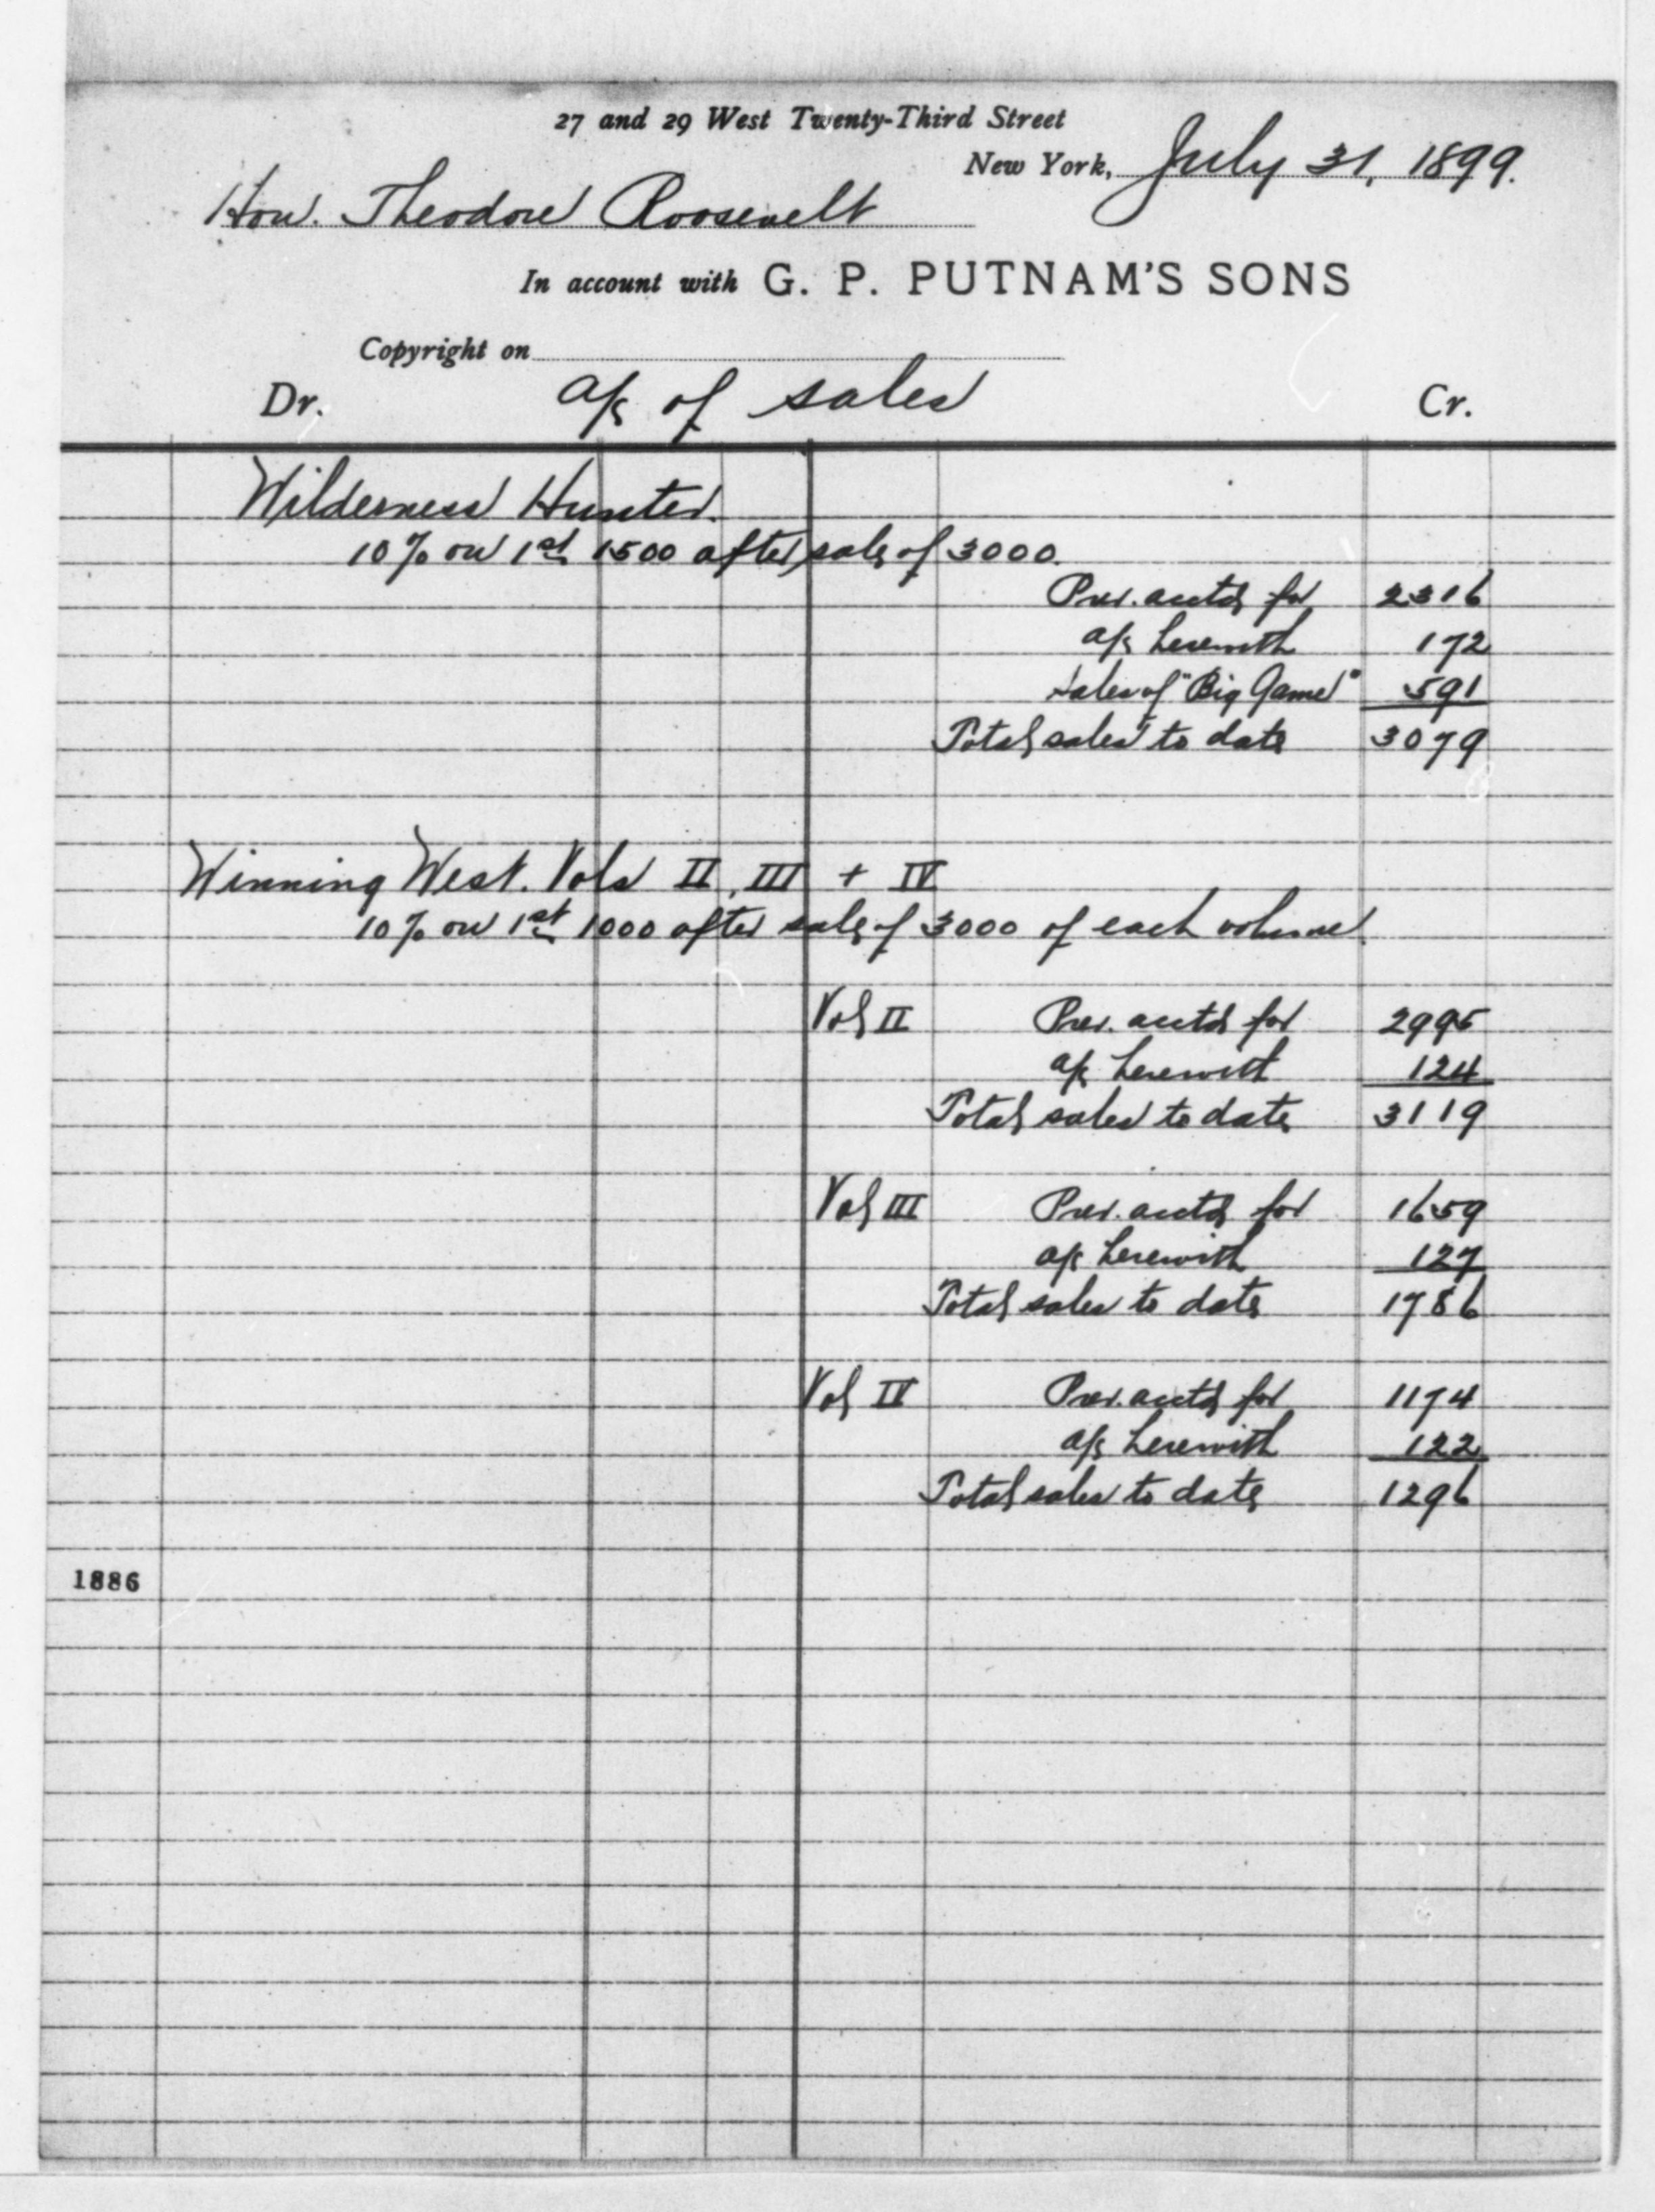 27 and 29 West Twenty-Third Street
New York, July 31, 1899.
Hon. Theodore Roosevelt
In account with G. P. PUTNAM'S SONS
Copyright on
Dr. a/c of sales Cr.
Wilderness Hunter.
10% on 1st 1500 after sale of 3000.
Prev. acctd for 2316
a/c herewith 172
Sales of "Big Game" 591
Total sales to date 3079
Winning West. Vols II, III + IV
10% on 1st 1000 after sale of 3000 of each volume.
Vol II Prev. acctd for 2995
a/c herewith 124
Total sales to date 3119
Vol III Prev. acctd for 1659
a/c herewith 127
Total sales to date 1786
Vol IV Prev. acctd for 1174
a/c herewith 122
Total sales to date 1296
1886